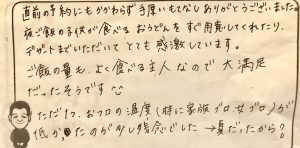 直前の予約にもかかわらず手厚いもてなしありがとうございました。
夜ご飯の子供が食べるおうどんをすぐ用意してくれたり、
デザートまでいただいてとても感激しています。
ご飯の量も、よく食べる主人なので大満足
だったそうです
ただ1つ、おフロの温度(特に家族ブロせブロ)が
低かったのが少し残念でした → 夏だったから?